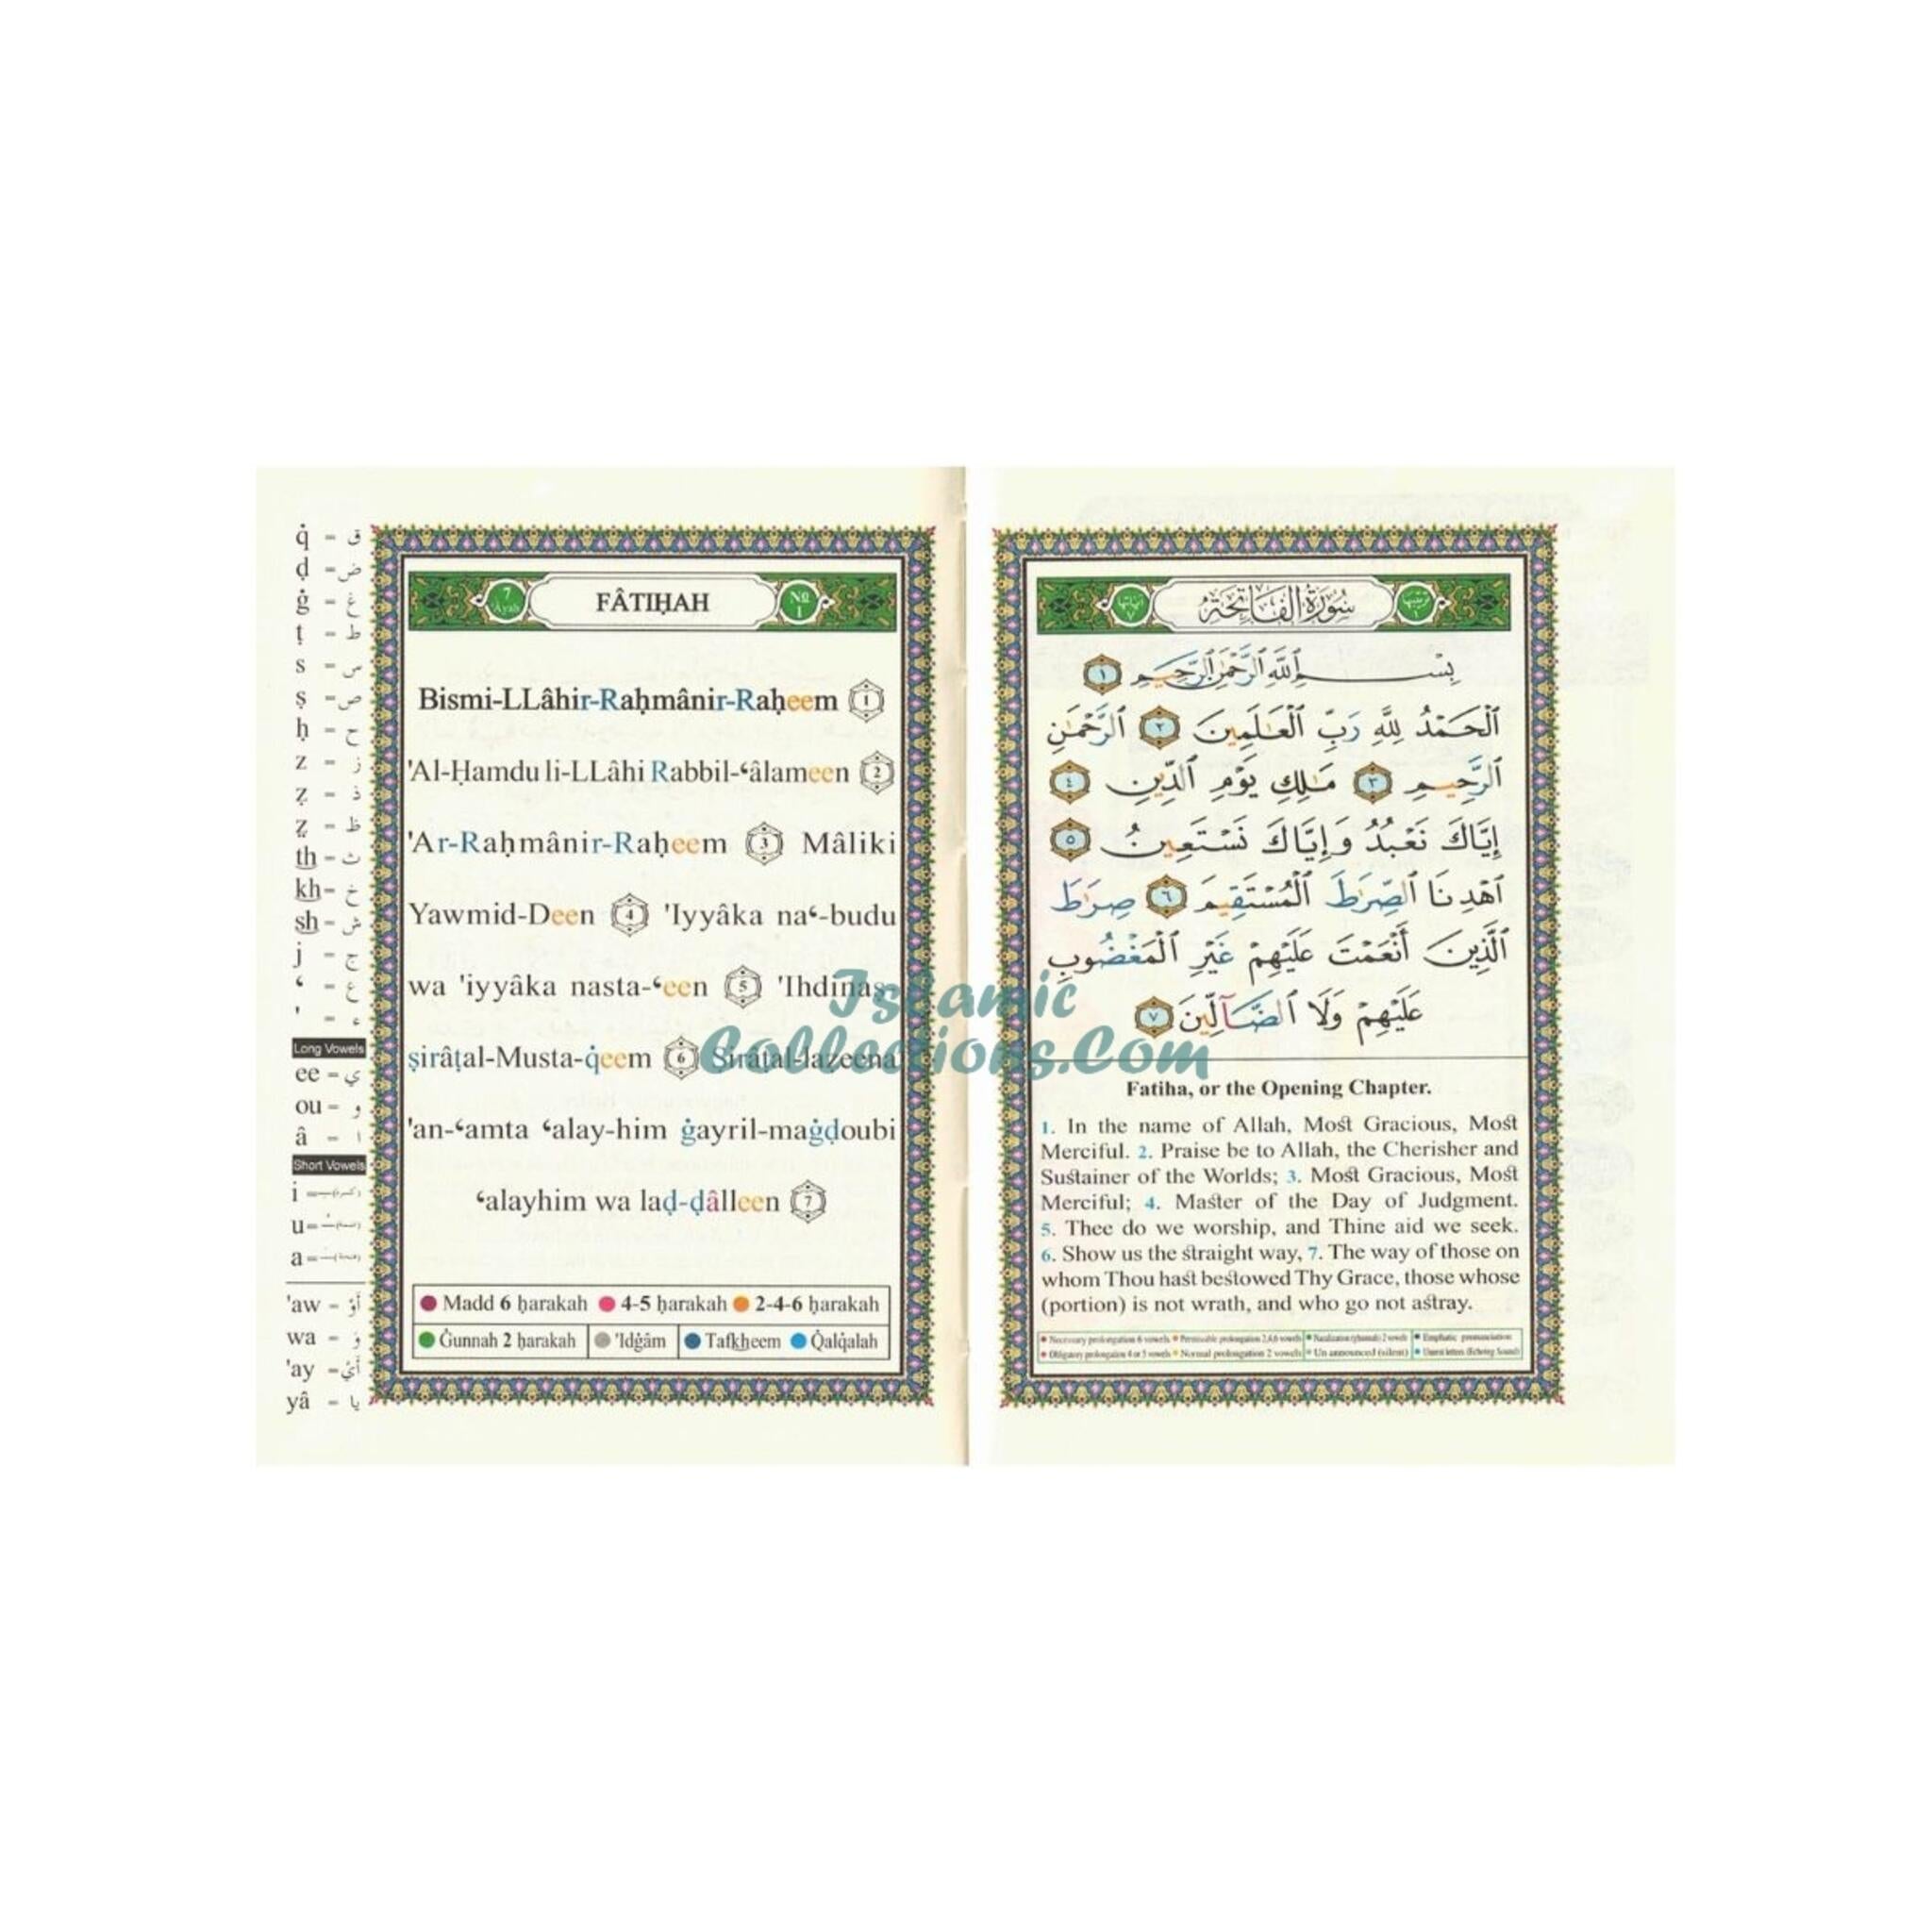 q̇ = ق
ḍ = ض
ġ = غ
ṭ = ط
s = س
ṣ = ص
ḥ = ح
z = ز
ẓ = ذ
ẓ̤ = ظ
th = ث
kh = خ
sh = ش
j = ج
ʻ = ع
' = ء
Long Vowels
ee = ي
ou = و
â = ا
Short Vowels
i =
u =
a =
'aw = أَوْ
wa = وَ
'ay = أَيْ
yâ = يا
7 'Âyah FÂTIḤAH № 1
Bismi-LLâhir-Raḥmânir-Raḥeem 1
'Al-Ḥamdu li-LLâhi Rabbil-ʻâlameen 2
'Ar-Raḥmânir-Raḥeem 3 Mâliki
Yawmid-Deen 4 'Iyyâka naʻ-budu
wa 'iyyâka nasta-ʻeen 5 'Ihdinaṣ-
ṣirâṭal-Musta-q̇eem 6 Ṣirâṭal-lazeena
'an-ʻamta ʻalay-him ġayril-maġḍoubi
ʻalayhim wa laḍ-ḍâlleen 7
Madd 6 ḥarakah 4-5 ḥarakah 2-4-6 ḥarakah
Ġunnah 2 ḥarakah 'Idġâm Tafkheem Q̇alq̇alah
سُورَةُ الفَاتِحَةِ
بِسْمِ ٱللَّهِ ٱلرَّحْمَٰنِ ٱلرَّحِيمِ ١
ٱلْحَمْدُ لِلَّهِ رَبِّ ٱلْعَٰلَمِينَ ٢ ٱلرَّحْمَٰنِ
ٱلرَّحِيمِ ٣ مَٰلِكِ يَوْمِ ٱلدِّينِ ٤
إِيَّاكَ نَعْبُدُ وَإِيَّاكَ نَسْتَعِينُ ٥
ٱهْدِنَا ٱلصِّرَٰطَ ٱلْمُسْتَقِيمَ ٦ صِرَٰطَ
ٱلَّذِينَ أَنْعَمْتَ عَلَيْهِمْ غَيْرِ ٱلْمَغْضُوبِ
عَلَيْهِمْ وَلَا ٱلضَّآلِّينَ ٧
Fatiha, or the Opening Chapter.
1. In the name of Allah, Most Gracious, Most
Merciful. 2. Praise be to Allah, the Cherisher and
Sustainer of the Worlds; 3. Most Gracious, Most
Merciful; 4. Master of the Day of Judgment.
5. Thee do we worship, and Thine aid we seek.
6. Show us the straight way, 7. The way of those on
whom Thou hast bestowed Thy Grace, those whose
(portion) is not wrath, and who go not astray.
Necessary prolongation 6 vowels Permissible prolongation 2,4,6 vowels Nasalization (ghunnah) 2 vowels Emphatic pronunciation
Obligatory prolongation 4 or 5 vowels Normal prolongation 2 vowels Un announced (silent) Unrest letters (Echoing Sound)
Islamic
Collections.Com